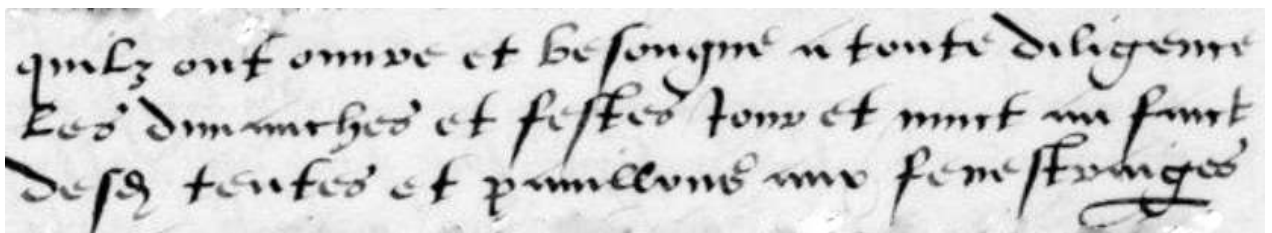 quilz ont ouvre et besongne a toute diligence
Les dimanches et festes Jour et nuict au faict
desd tentes et pavillons aux fenestraiges